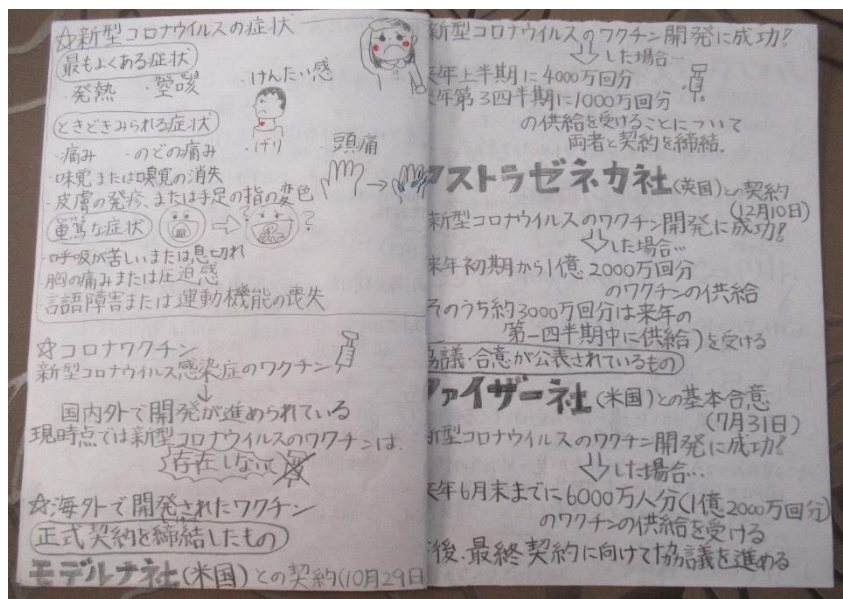 ☆新型コロナウイルスの症状
最もよくある症状
・発熱 ・空咳 ・けんたい感
ときどきみられる症状
・痛み ・のどの痛み ・げり ・頭痛
・味覚または嗅覚の消失
・皮膚の発疹、または手足の指の変色
重篤な症状
・呼吸が苦しいまたは息切れ
・胸の痛みまたは圧迫感
・言語障害または運動機能の喪失
☆コロナワクチン
新型コロナウイルス感染症のワクチン
↓
国内外で開発が進められている
現時点では新型コロナウイルスのワクチンは、
存在しない
☆海外で開発されたワクチン
正式契約を締結したもの
モデルナ社(米国)との契約(10月29日
新型コロナウイルスのワクチン開発に成功!
⇩した場合…
来年上半期に4000万回分
来年第3四半期に1000万回分
の供給を受けることについて
両者と契約を締結.
アストラゼネカ社(英国)との契約
(12月10日)
新型コロナウイルスのワクチン開発に成功!
⇩した場合…
来年初期から1億2000万回分
のワクチンの供給
そのうち約3000万回分は来年の
第一四半期中に供給)を受ける
協議・合意が公表されているもの)
ファイザー社(米国)との基本合意
(7月31日)
新型コロナウイルスのワクチン開発に成功!
⇩した場合…
来年6月末までに6000万人分(1億2000万回分)
のワクチンの供給を受ける
後、最終契約に向けて協議を進める